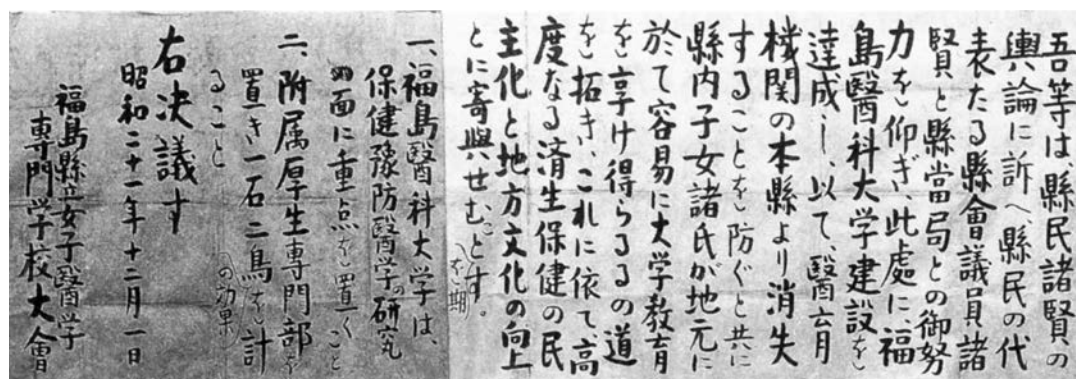 吾等は、縣民諸賢の
輿論に訴へ縣民の代
表たる縣會議員諸
賢と縣當局との御努
力を仰ぎ、此處に、福
島醫科大学建設を
達成し、以て、醫育
機関の本縣より消失
することを防ぐと共に
縣内子女諸氏が地元に
於て容易に大学教育
を享け得らるゝの道
を拓き、これに依て、高
度なる済生保健の民
主化と地方文化の向上
とに寄與せむことを期す。
一、福島醫科大学は、
保健豫防醫学の研究
の面に重点を置くこと
二、附属厚生専門部を
置き一石二鳥の効果を計
ること
右決議す
昭和二十一年十二月一日
福島縣立女子醫学
専門学校大會